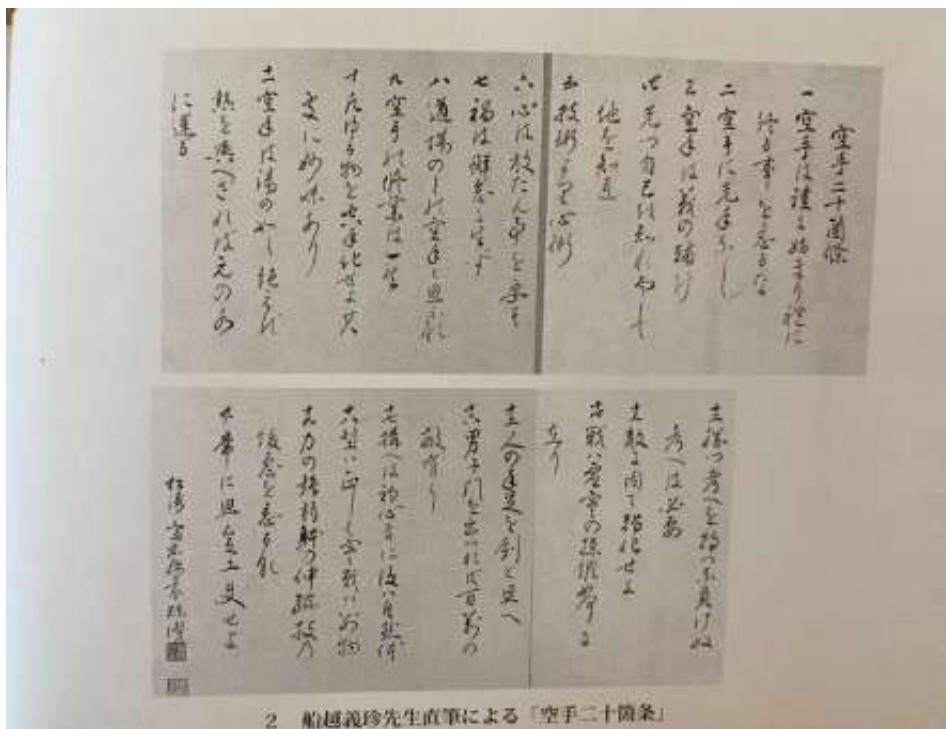 空手二十箇條
一 空手は礼に始まり礼に
終る事を忘るな
二 空手に先手なし
三 空手は義の輔け
四 先づ自己を知れ而して
他を知れ
五 技術より心術
六 心は放たん事を要す
七 禍は懈怠に生ず
八 道場のみの空手と思ふな
九 空手の修業は一生
十 凡ゆる物を空手化せよ其
処に妙味あり
十一 空手は湯の如し絶えず
熱を与へざれば元の水
に還る
十二 勝つ考へを持つな負けぬ
考へは必要
十三 敵に因て轉化せよ
十四 戦は虚実の操縦如何に
在り
十五 人の手足を剣と思へ
十六 男子門を出づれば百万の
敵有り
十七 構へは初心者に後は自然体
十八 型は正しく実戦は別物
十九 力の強弱体の伸縮技の
緩急を忘るな
二十 常に思念工夫せよ
2 船越義珍先生直筆による「空手二十箇条」